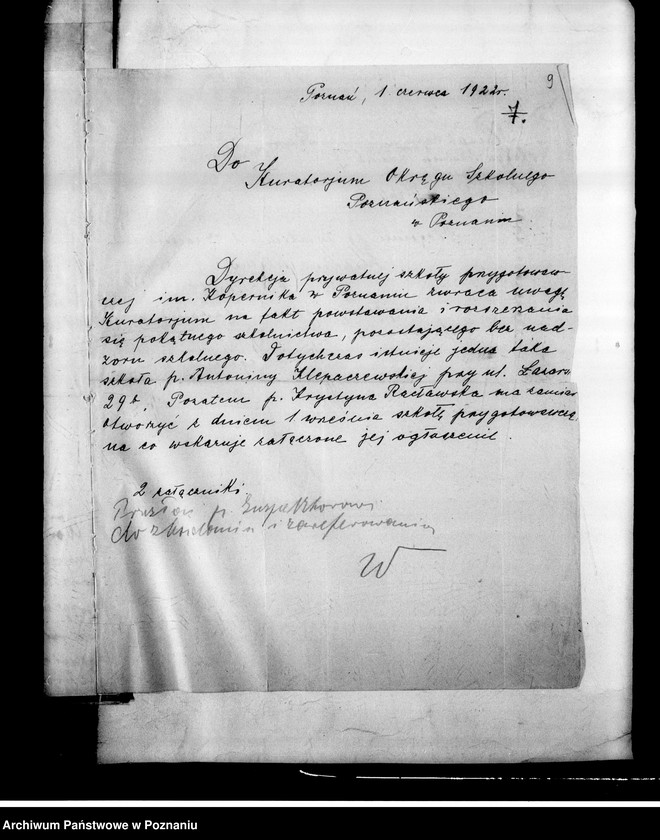 9
Poznań, 1 czerwca 1922r.
7.
Do
Kuratorjum Okręgu Szkolnego
Poznańskiego
w Poznaniu
Dyrekcja prywatnej szkoły przygotowaw-
czej im. Kopernika w Poznaniu zwraca uwagę
Kuratorjum na fakt powstawania i rozszerzania
się pokątnego szkolnictwa, pozostającego bez nad-
zoru szkolnego. Dotychczas istnieje jedna taka
szkoła p. Antoniny Klepaczewskiej przy ul. Łazarz
29b. Pozatem p. Krystyna Racławska ma zamiar
otworzyć z dniem 1 września szkołę przygotowawczą,
na co wskazuje załączone jej ogłoszenie.
2 załączniki
p. Inspektorowi
do zbadania i zareferowania
W
Archiwum Państwowe w Poznaniu